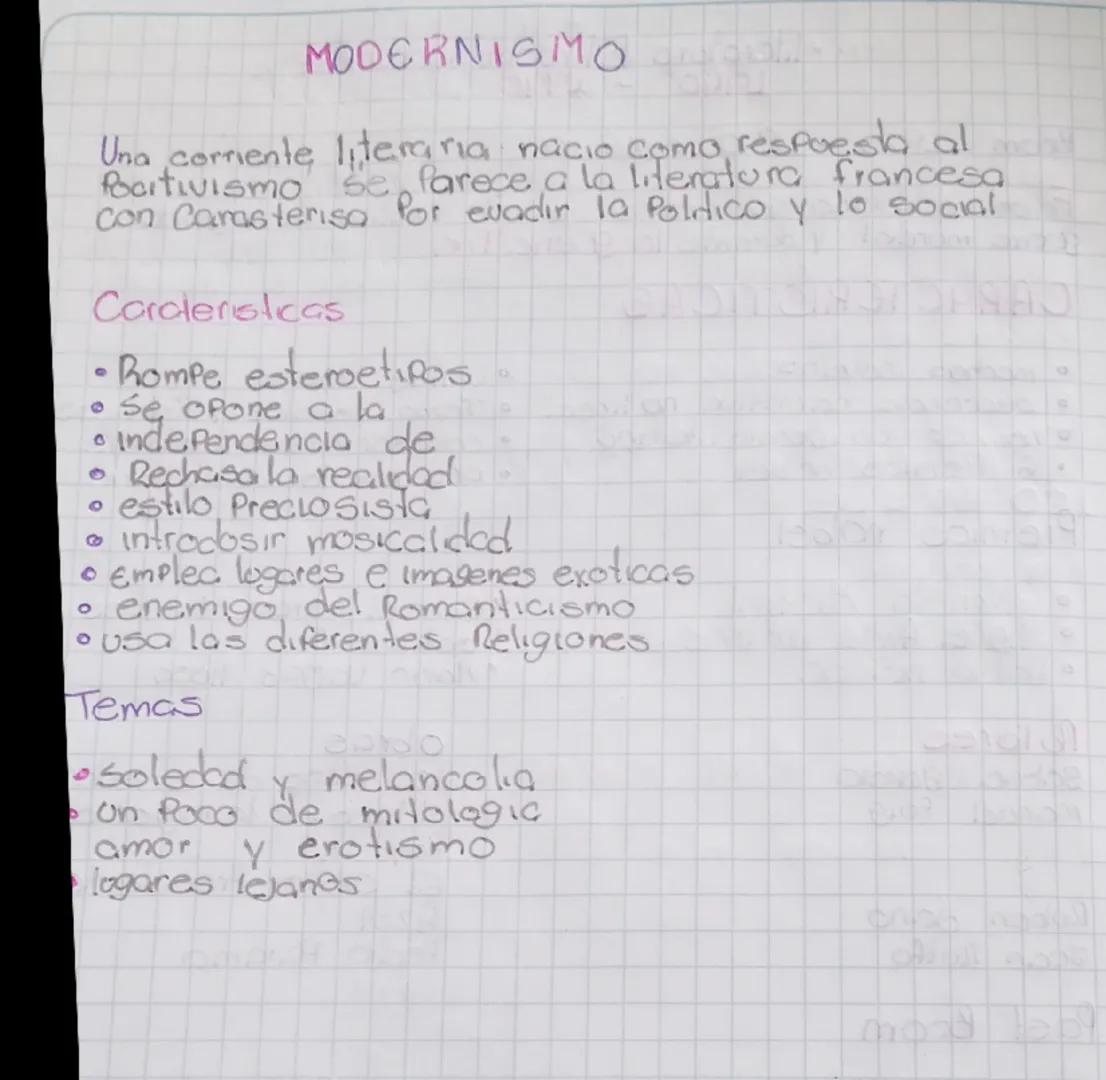 MODERNISMO
Una corriente literaria nacio como respuesta al
Pocitivismo se Parece a la literatura francesa
con Carasterisa Por evadir la Politico y lo social
Caracteristicas
• Rompe esteroetipos
• se opone a la
• independencia de
• Rechasa la realidad
• estilo Preciosista
• introdusir musicalidad
• Emplea lugares e imagenes exoticas
• enemigo del Romanticismo
• usa las diferentes Religiones
Temas
• soledad y melancolia
• un Poco de mitologia
amor y erotismo
• lugares lejanos